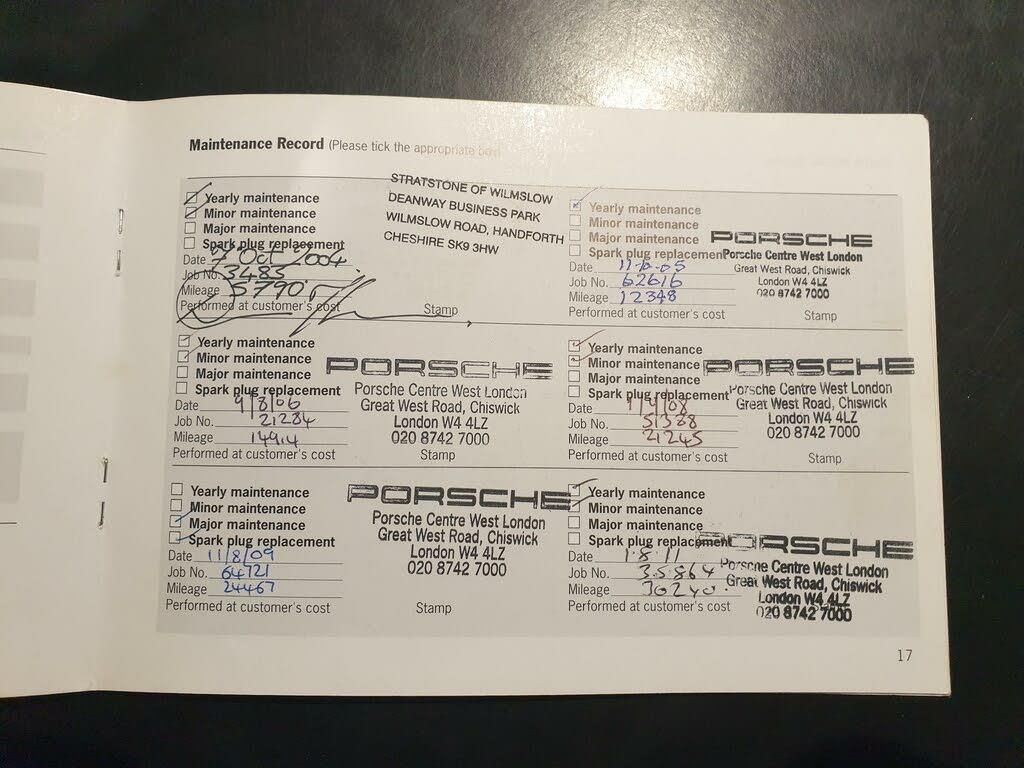 Maintenance Record (Please tick the appropriate box)
Yearly maintenance
Minor maintenance
Major maintenance
Spark plug replacement
Date 7 Oct 2004
Job No. 3485
Mileage 5790
Performed at customer's cost
STRATSTONE OF WILMSLOW
DEANWAY BUSINESS PARK
WILMSLOW ROAD, HANDFORTH
CHESHIRE SK9 3HW
Stamp
Yearly maintenance
Minor maintenance
Major maintenance
Spark plug replacement
Date
Job No. 62616
Mileage 12348
Performed at customer's cost
PORSCHE
Porsche Centre West London
Great West Road, Chiswick
London W4 4LZ
020 8742 7000
Stamp
Yearly maintenance
Minor maintenance
Major maintenance
Spark plug replacement
Date 9/8/06
Job No. 21284
Mileage 14914
Performed at customer's cost
PORSCHE
Porsche Centre West London
Great West Road, Chiswick
London W4 4LZ
020 8742 7000
Stamp
Yearly maintenance
Minor maintenance
Major maintenance
Spark plug replacement
Date
Job No. 51388
Mileage 21245
Performed at customer's cost
PORSCHE
Porsche Centre West London
Great West Road, Chiswick
London W4 4LZ
020 8742 7000
Stamp
Yearly maintenance
Minor maintenance
Major maintenance
Spark plug replacement
Date 11/8/09
Job No. 64721
Mileage 24467
Performed at customer's cost
PORSCHE
Porsche Centre West London
Great West Road, Chiswick
London W4 4LZ
020 8742 7000
Stamp
Yearly maintenance
Minor maintenance
Major maintenance
Spark plug replacement
Date 1.8.11
Job No. 35864
Mileage 30240.
Performed at customer's cost
PORSCHE
Porsche Centre West London
Great West Road, Chiswick
London W4 4LZ
020 8742 7000
17